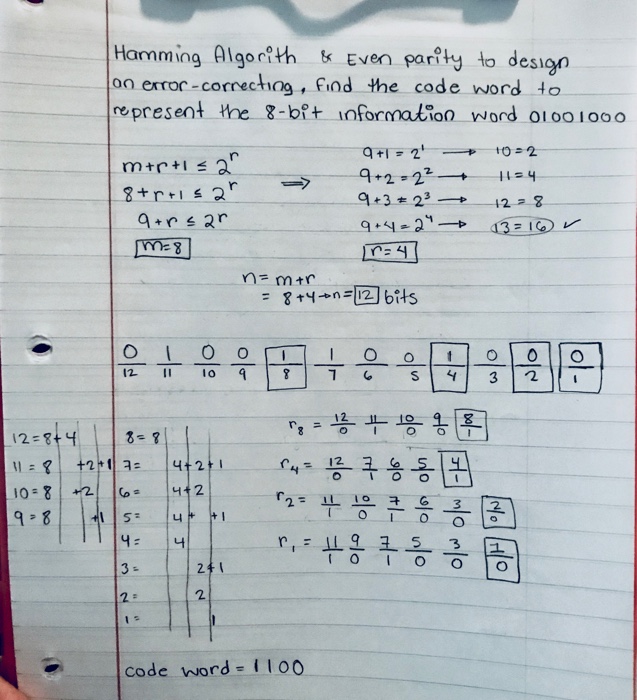 Hamming Algorith & Even parity to design
an error-correcting, find the code word to
represent the 8-bit information word 01001000
m+r+1 ≤ 2^r
8+r+1 ≤ 2^r
9+r ≤ 2^r
m=8
⇒
9+1 = 2^1 → 10=2
9+2 = 2^2 → 11=4
9+3 ≠ 2^3 → 12=8
9+4 = 2^4 → 13=16 ✓
r=4
n= m+r
= 8+4→n=12 bits
0 1 0 0 1 1 0 0 1 0 0 0
12 11 10 9 8 7 6 5 4 3 2 1
12=8+4
11=8 +2+1
10=8 +2
9=8 +1
8=8
7= 4+2+1
6= 4+2
5= 4+ +1
4= 4
3= 2+1
2= 2
1= 1
r8 = 12/0 11/1 10/0 9/0 8/1
r4 = 12/0 7/1 6/0 5/0 4/1
r2 = 11/1 10/0 7/1 6/0 3/0 2/0
r1 = 11/1 9/0 7/1 5/0 3/0 1/0
code word = 1100